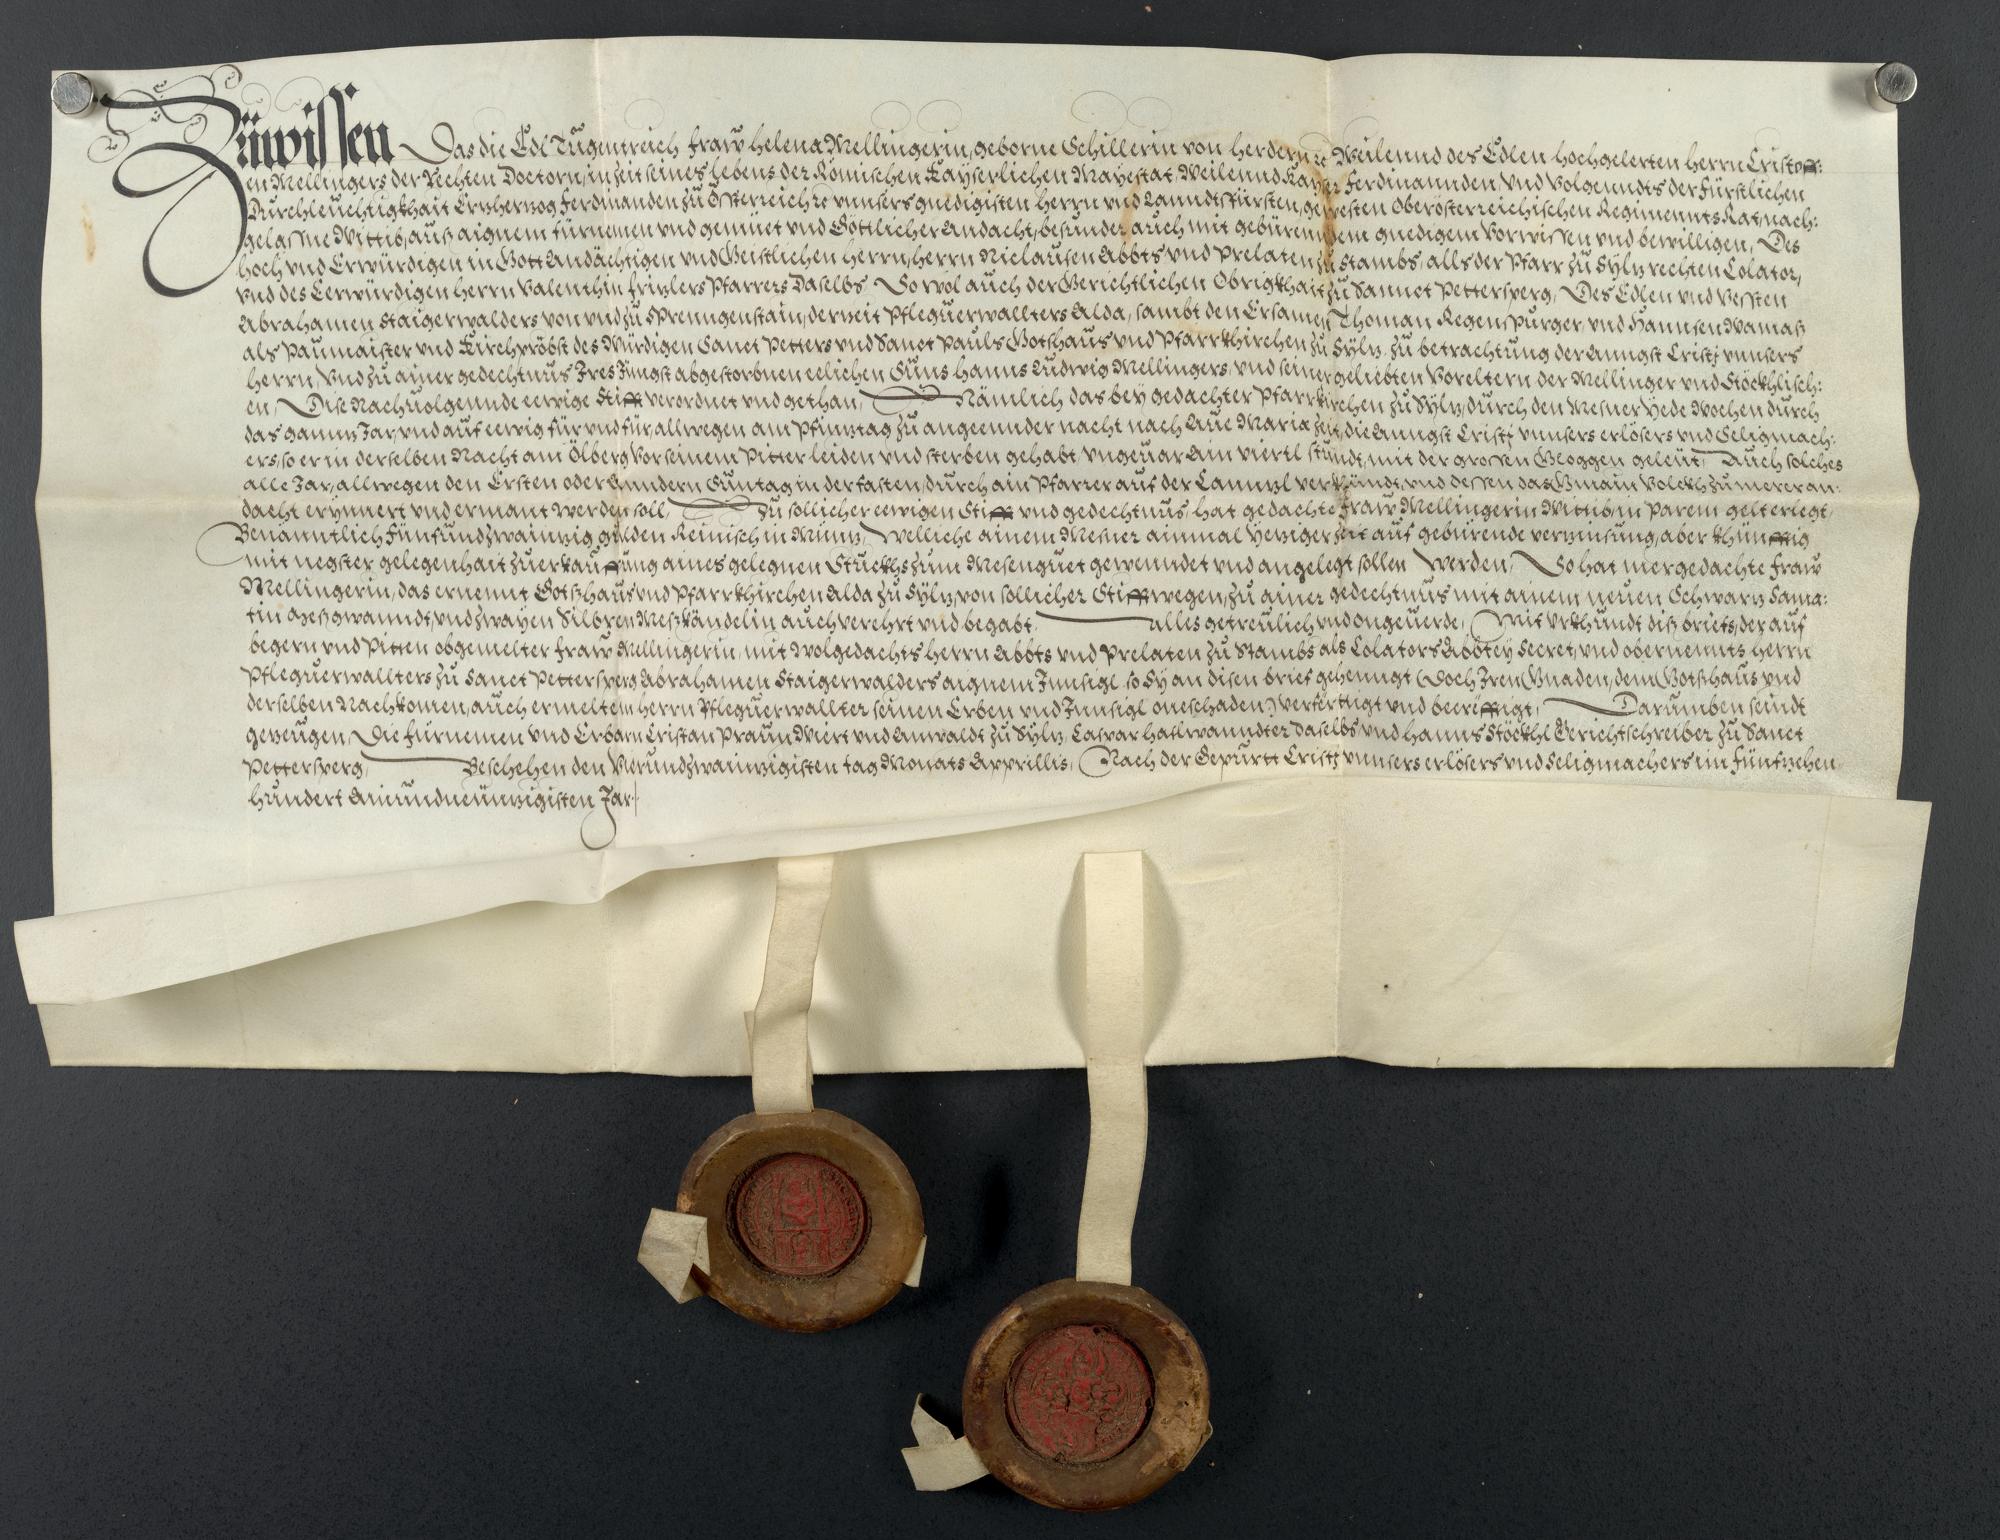 Zuwissen Das die Edl Tugentreich Fraw Helena Mellingerin, geborne Schillerin von Herdern ꝛc Weilennd des Edlen hochgelerten Herrn Cristoff:
en Mellingers der Rechten Doctorn, in zeit seines lebens der Römischen Kayserlichen Mayestat, Weilennd Kayser Ferdinannden, und volgenndts der Fürstlichen
Durchleuchtigkhait Ertzherzog Ferdinanden zu Össterreich ꝛc unnsers gnedigisten Herrn und Lanndtsfürsten, gewesten Oberösterreichischen Regimennts Rat, nach:
gelassne Wittib, auß aignem fürnemen und gemüet und Göttlicher Andacht, besunder auch mit gebürenndem gnedigem vorwissen und bewilligen, Des
hoch und Erwürdigen in Gott Andächtigen und Geistlichen herrn, herrn Niclausen Abbts und Prelaten zu Stambs, alls der Pfarr zu Sylz rechten Colator,
und des Eerwürdigen herrn Valenthin Frizlers Pfarrers Daselbs So wol auch der Gerichtlichen Obrigkhait zu Sannct Pettersperg, Des Edlen und Vessten
Abrahamen Staigerwalders von und zu Sprenngenstain, derzeit Pflegverwallters Alda, sambt den Ersamen Thoman Regenspurger, und Hannsen Wamaß
als Paumaister und Kirchpröbst des Würdigen Sanct Petters und Sanct Pauls Gotshaus und Pfarrkhirchen zu Sylz zu betrachtung der Anngst Cristj unnsers
Herrn, Und zu ainer gedechtnus Ires Jungst abgestorbnen eelichen Suns Hanns Ludwig Mellingers, und seiner geliebten Voreltern der Mellinger und Stöckhlisch:
en, Dise Nachuolgennde eewige Stifft verordnet und gethan, Nämlich das bey gedachter Pfarrkirchen zu Sylz, durch den Mesner Yede Wochen durch
das gannz Jar, und auf eewig für und für, allwegen am Pfinztag zu angeennder nacht nach Aue Maria zeit, die Anngst Cristj unnsers erlösers und Seligmach:
ers, so er in derselben Nacht am Ölberg vor seinem Pitter leiden und sterben gehabt, ungeuar Ain viertl stundt, mit der grossen Gloggen geleüt, Auch solches
alle Jar, allwegen den Ersten oder Anndern Suntag in der fasten, durch ain Pfarrer auf der Canntzl verkhündt, und dessen das Gmain Volckh zu merer an:
dacht erynnert und ermant werden soll, Zu sollicher eewigen Stifft und gedechtnus, hat gedachte Fraw Mellingerin Wittib, in parem gelt erlegt,
Benanntlich Fünfundzwainzig gulden Reinisch in Münz, Welliche ainem Mesner ainmal yeziger zeit auf gebürende verzinsung, aber khünfftig
mit negster gelegenhait zuerkauffung aines gelegnen Stuckhs zum Mesenguet gewenndet und angelegt sollen werden, So hat mergedachte Fraw
Mellingerin, das ernennt Gotßhaus und Pfarrkhirchen Alda zu Sylz, von sollicher Stifft wegen, zu ainer gedechtnus mit ainem neuen Schwarz Sama:
tin Meßgwanndt, und zwayen Silbren Meßkändelin auch verehrt und begabt. alles getreulich und ongeuerde, Mit urkhundt diß briefs, der auf
begern und Pitten obgemelter Fraw Mellingerin, mit Wolgedachts Herrn Abbts und Prelaten zu Stambs als Colators Abbtey Secret, und obernennts Herrn
Pflegverwallters zu Sanct Pettersperg Abrahamen Staigerwalders aignem Innsigl so Sy an disen brief gehenngt (Doch Iren Gnaden, dem Gotßhaus und
derselben Nachkomen, auch ermeltem Herrn Pflegverwallter seinen Erben und Innsigl oneschaden) verfertigt und becrefftigt, Darumben seindt
gezeugen, Die fürnemen und Erbarn Cristan Praun Wiert und Anwaldt zu Sylz, Caspar Hatlwanndter daselbs und Hanns Stöckhl Gerichtschreiber zu Sanct
Pettersperg, Beschehen den Vierundzwainzigisten tag Monats Apprillis, Nach der Gepurtt Cristj unnsers erlösers und Seligmachers im Fünfzehen
hundert Ainundneünzigisten Jar.